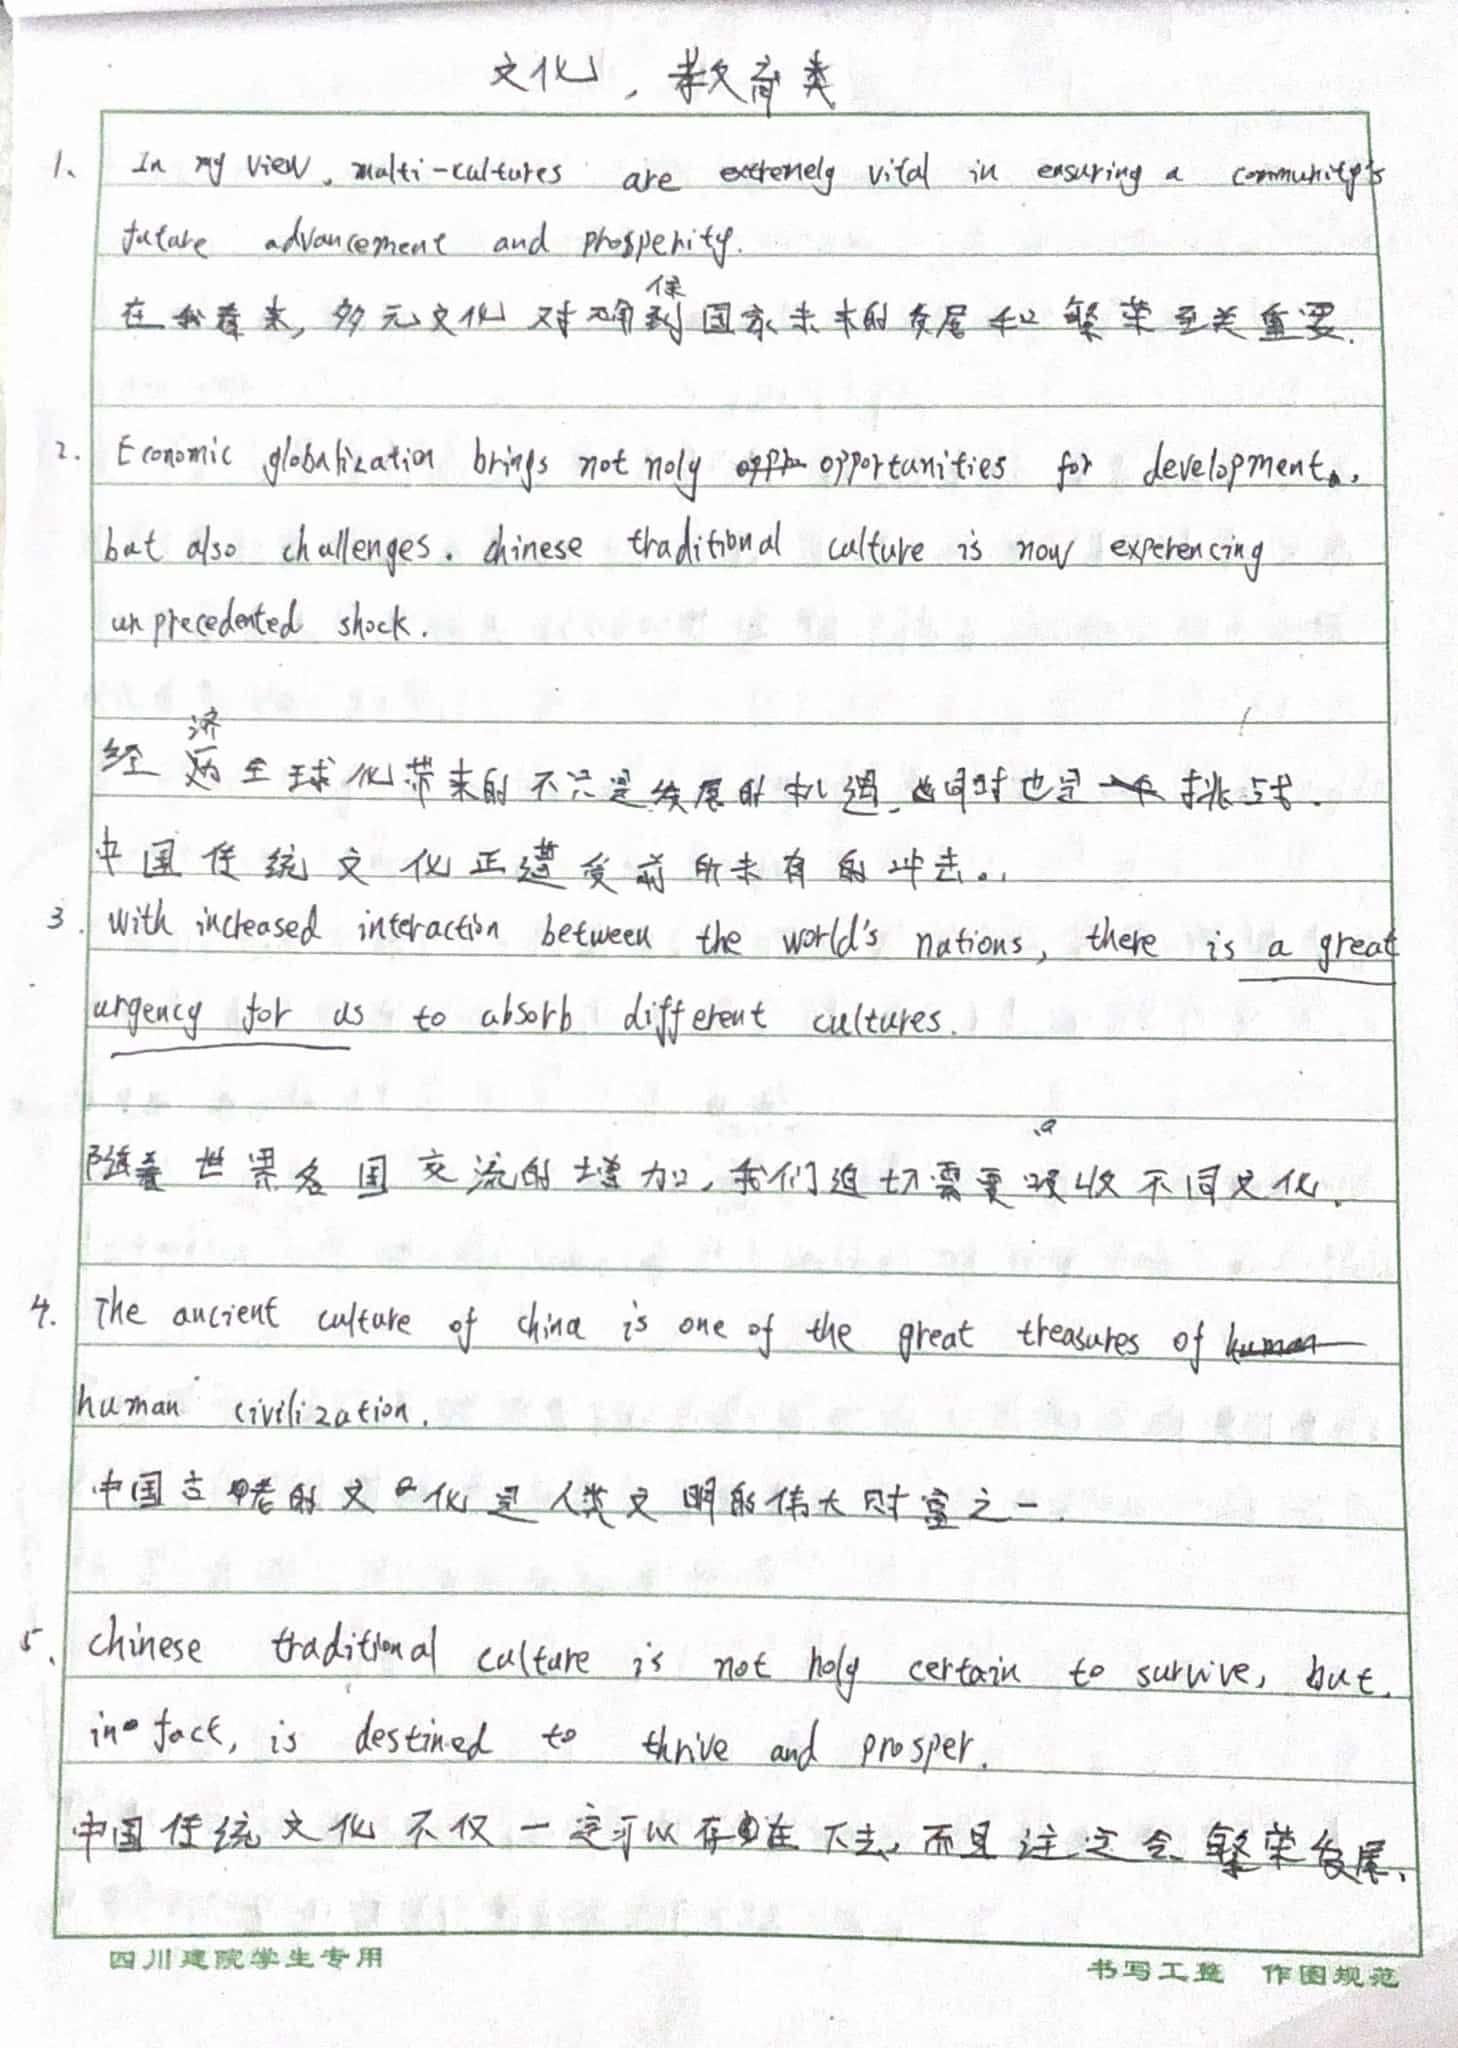 文化，教育类
1. In my view, multi-cultures are extremely vital in ensuring a community's
future advancement and prosperity.
在我看来，多元文化对确保国家未来的发展和繁荣至关重要.
2. Economic globalization brings not noly opportunities for development,
but also challenges. chinese traditional culture is now experencing
unprecedented shock.
经济全球化带来的不只是发展的机遇，同时也是挑战.
中国传统文化正遭受前所未有的冲击。
3. With increased interaction between the world's nations, there is a great
urgency for us to absorb different cultures.
随着世界各国交流的增加，我们迫切需要吸收不同文化.
4. The ancient culture of china is one of the great treasures of
human civilization.
中国古老的文化是人类文明的伟大财富之一.
5. Chinese traditional culture is not noly certain to survive, but,
in fact, is destined to thrive and prosper.
中国传统文化不仅一定可以存在下去，而且注定会繁荣发展.
四川建院学生专用 书写工整 作图规范